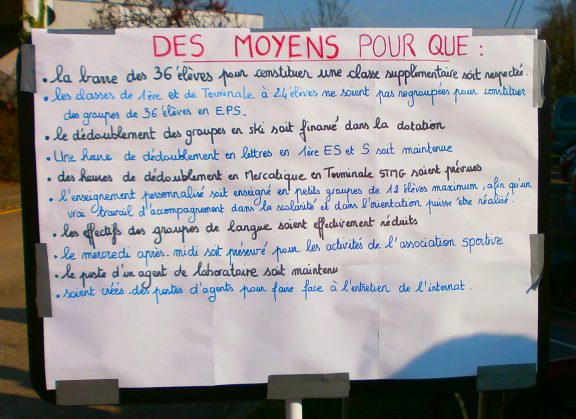 DES MOYENS POUR QUE :
• la barre des 36 élèves pour constituer une classe supplémentaire soit respectée.
• les classes de 1ère et de Terminale à 24 élèves ne soient pas regroupées pour constituer
des groupes de 36 élèves en EPS.
• le dédoublement des groupes en ski soit financé dans la dotation
• Une heure de dédoublement en lettres en 1ère ES et S soit maintenue
• des heures de dédoublement en Mercatique en Terminale STMG soient prévues
• l'enseignement personnalisé soit enseigné en petits groupes de 18 élèves maximum, afin qu'un
vrai travail d'accompagnement dans la scolarité et dans l'orientation puisse être réalisé.
• les effectifs des groupes de langue soient effectivement réduits
• le mercredi après-midi soit préservé pour les activités de l'association sportive
• le poste d'un agent de laboratoire soit maintenu
• soient créés des postes d'agents pour faire face à l'entretien de l'internat.